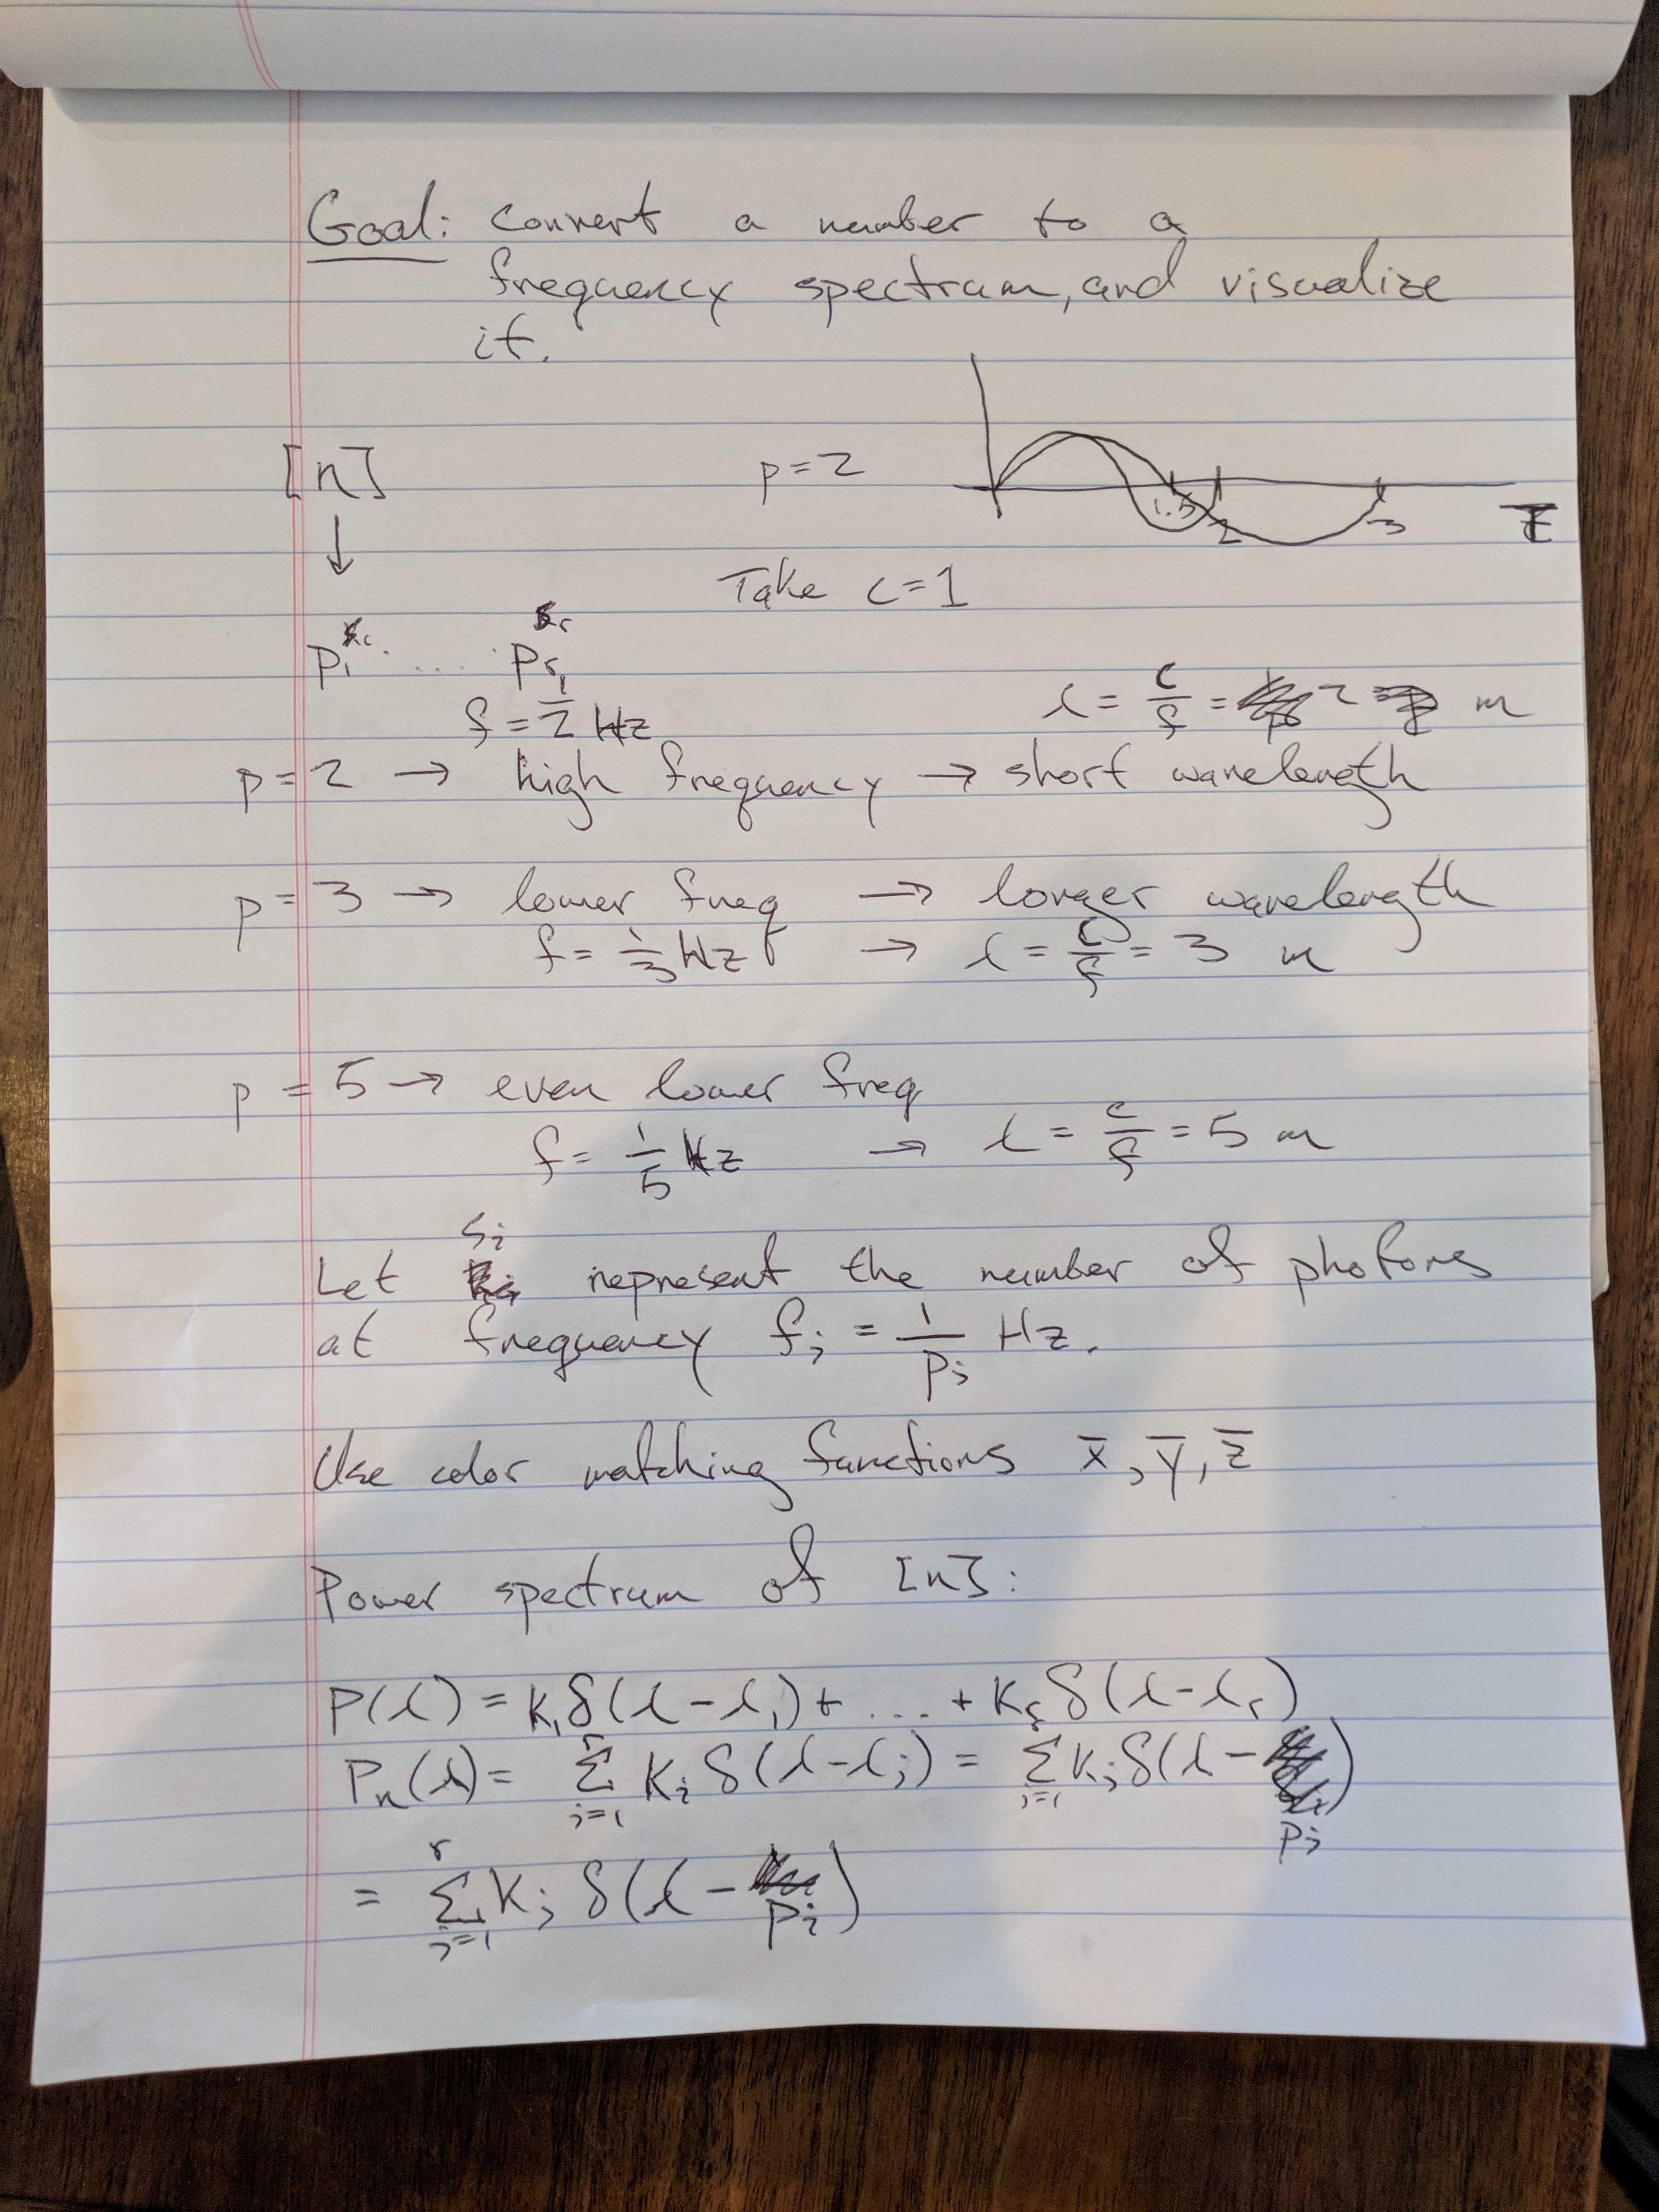 Goal: Convert a number to a
frequency spectrum, and visualize
it.
[n]
p=2
1.5 2 3
Take c=1
p₁ .... pᵣ
f = 1/2 Hz
l = c/f = 2 m
p=2 → high frequency → short wavelength
p=3 → lower freq → longer wavelength
f = 1/3 Hz → l = c/f = 3 m
p=5 → even lower freq
f = 1/5 Hz → l = c/f = 5 m
Let sᵢ represent the number of photons
at frequency fⱼ = 1/pⱼ Hz.
Use color matching functions x̄, ȳ, z̄
Power spectrum of [n]:
P(l) = K₁δ(l-l₁)+ ... + Kᵣδ(l-lᵣ)
Pₙ(l) = Σ_{j=1}^{r} Kⱼ δ(l-lⱼ) = Σ_{j=1} Kⱼ δ(l - pⱼ)
= Σ_{j=1}^{r} Kⱼ δ(l - pⱼ)